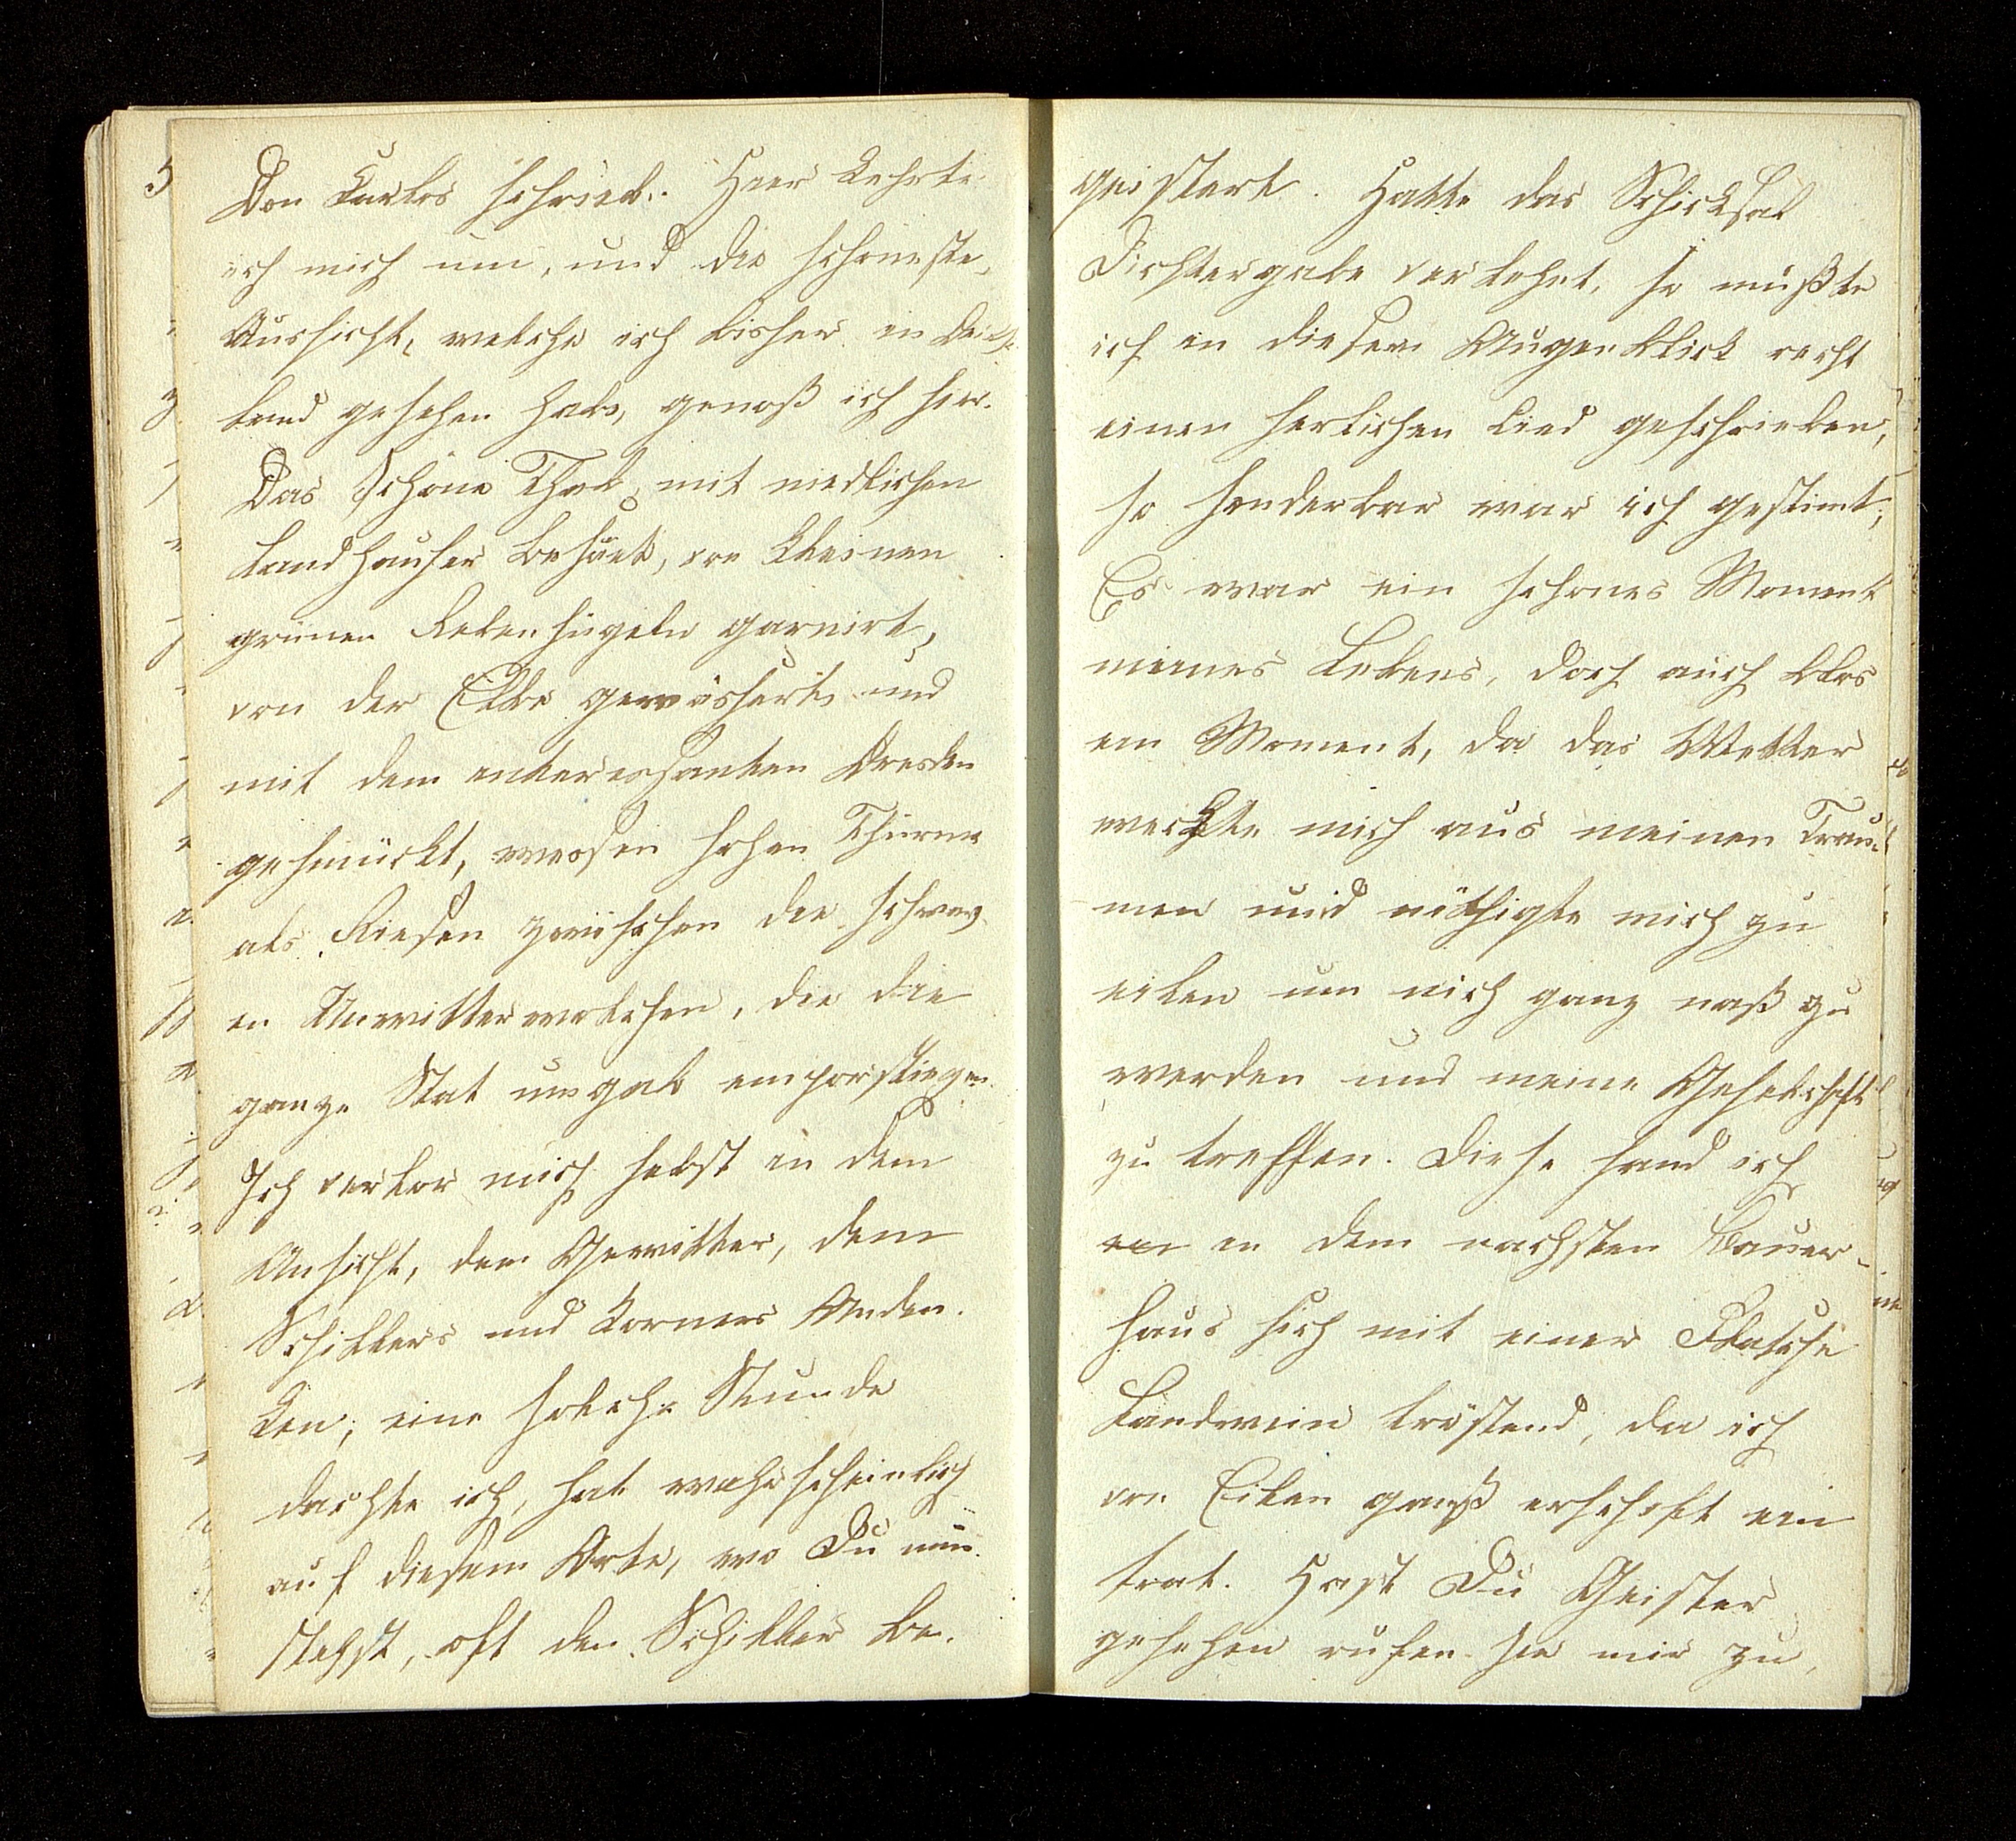 Don Carlos schrieb. Hier kehrte
ich mich um, und die schoneste
Aussicht, welche ich bisher in Deutsch
land gesehen habe, genoß ich hier.
Das schöne Thal, mit niedlichen
Landhauser besäet, von kleinen
grünen Rebenhügeln garnirt,
von der Elbe gewässert und
mit dem interessanten Dresden
geschmückt, wessen hohen Thürme
als Riesen zwischen die schwarz
en Unwitterwolken, die die
ganze Stat umgab emporstiegen.
Ich verlor mich selbst in dem
Ansicht, dem Gewitter, dem
Schillers und Korners Anden-
ken; eine solche Stunde
dachte ich, hat wahrscheinlich
auf diesem Orte, wo Du nun
stehst, oft den Schiller be-
geistert. Hatte das Schicksal
Dichtergabe verlehnt, so mußte
ich in diesem Augenblick recht
einen herlichen Lied geschrieben,
so sonderbar war ich gestimt;
Es war ein schones Moment
meines Lebens, doch auch blos
ein Moment, da das Wetter
weckte mich aus meinen Trau-
men und nöthigte mich zu
eilen um nich ganz naß zu
werden und meine Geselschaft
zu treffen. Diese fand ich
in dem nachsten Bauer-
haus sich mit einer Flasche
Landwein tröstend, da ich
von Eilen ganß erschopft ein
trat. Hast Du Geister
gesehen rufen sie mir zu,